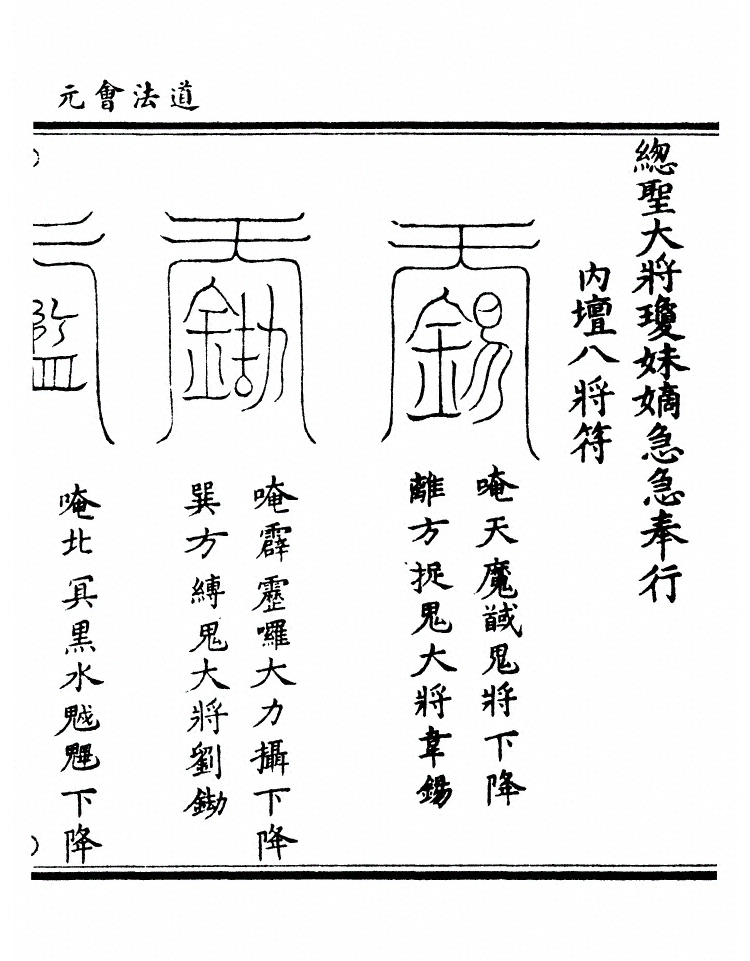 道法會元
總聖大將瓊妹嫡急急奉行
內壇八將符
唵天魔馘鬼將下降
離方捉鬼大將韋錫
唵霹靂囉大力攝下降
巽方縛鬼大將劉鋤
唵北冥黑水魆魓下降